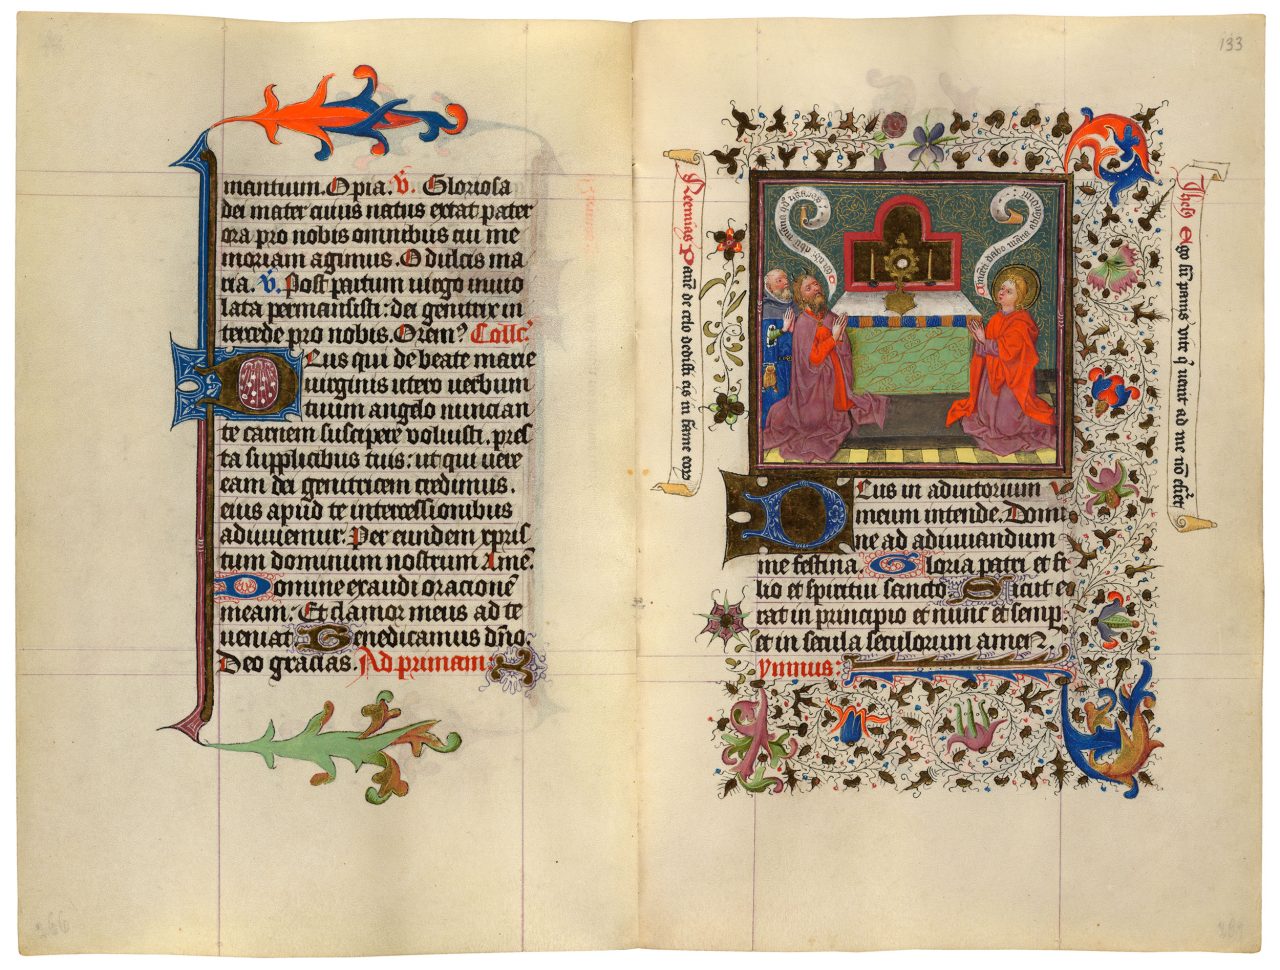 mantium. O pia. V̄. Gloriosa
dei mater cuius natus extat pater
ora pro nobis omnibus cui me
moriam agimus. O dulcis ma
ria. V̄. Post partum uirgo inuio
lata permansisti: dei genitrix in
tercede pro nobis. Orem? Collc̄.
Deus qui de beate marie
uirginis utero uerbum
tuum angelo nuncian
te carnem suscipere voluisti. pres
ta supplicibus tuis: ut qui uere
eam dei genitricem credimus.
eius apud te intercessionibus
adiuuemur. Per eundem xpris
tum dominum nostrum Amē.
Domine exaudi oracionē
meam: Et clamor meus ad te
ueniat Benedicamus dn̄o.
Deo gracias. Ad primam:
133
Neemias Panē de celo dedisti eis in fame eorū
Deus in adiutorium
meum intende. Domi
ne ad adiuuandum
me festina. Gloria patri et fi
lio et spiritui sancto Sicut e
rat in principio et nunc et semp.
et in secula seculorum amen.
ymnus:
Ego sū panis vite q̄ venit ad me nō esuriet